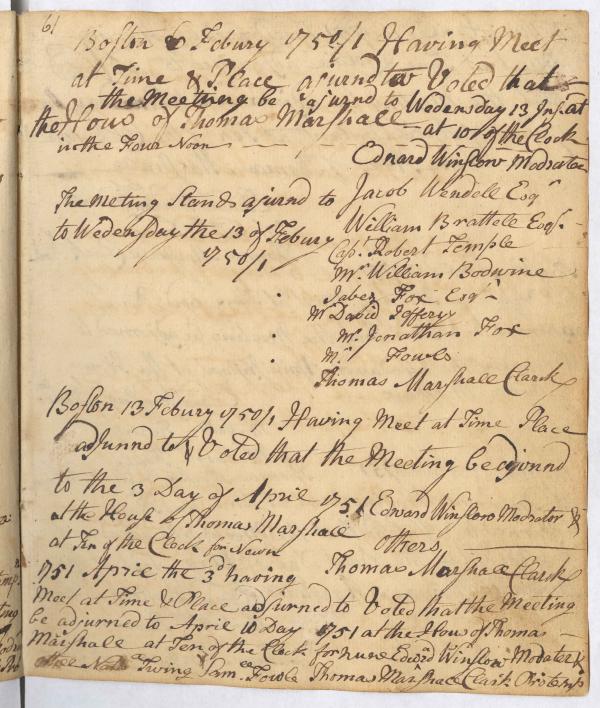 61
Boston 6 Febury 1750/1 Having Meet
at Time & Place ajurnd to Voted that
the Meeting be ajurnd to Wedensday 13 Inst at
the Hous of Thomas Marshall at 10 of the Clock
in the Four Noon
Edward Winslow Modrator
The Meting Stands ajurnd to
to Wedensday the 13 of Febury
1750/1
Jacob Wendell Esqr
William Brattell Esqr
Capt Robert Temple
Mr William Bodwine
Jabez Fox Esqr
Mr David Jeffery
Mr Jonathan Fox
Mr Fowls
Thomas Marshall Clark
Boston 13 Febury 1750/1 Having Meet at Time Place
adjurnnd to & Voted that the Meeting be ajornnd
to the 3 Day of April 1751 Edward Winslow Modrator &
at the House of Thomas Marshall
others
at Ten of the Clock for Nown
Thomas Marshall Clark
1751 April the 3d having
Meet at Time & Place adjurned to Voted that the Meeting
be adjurned to April 10 Day 1751 at the Hous of Thomas
Marshall at Ten of the Clock for nune Edwd Winslow Modater &
Twing Sam Fowle Thomas Marshall Clark Protemp